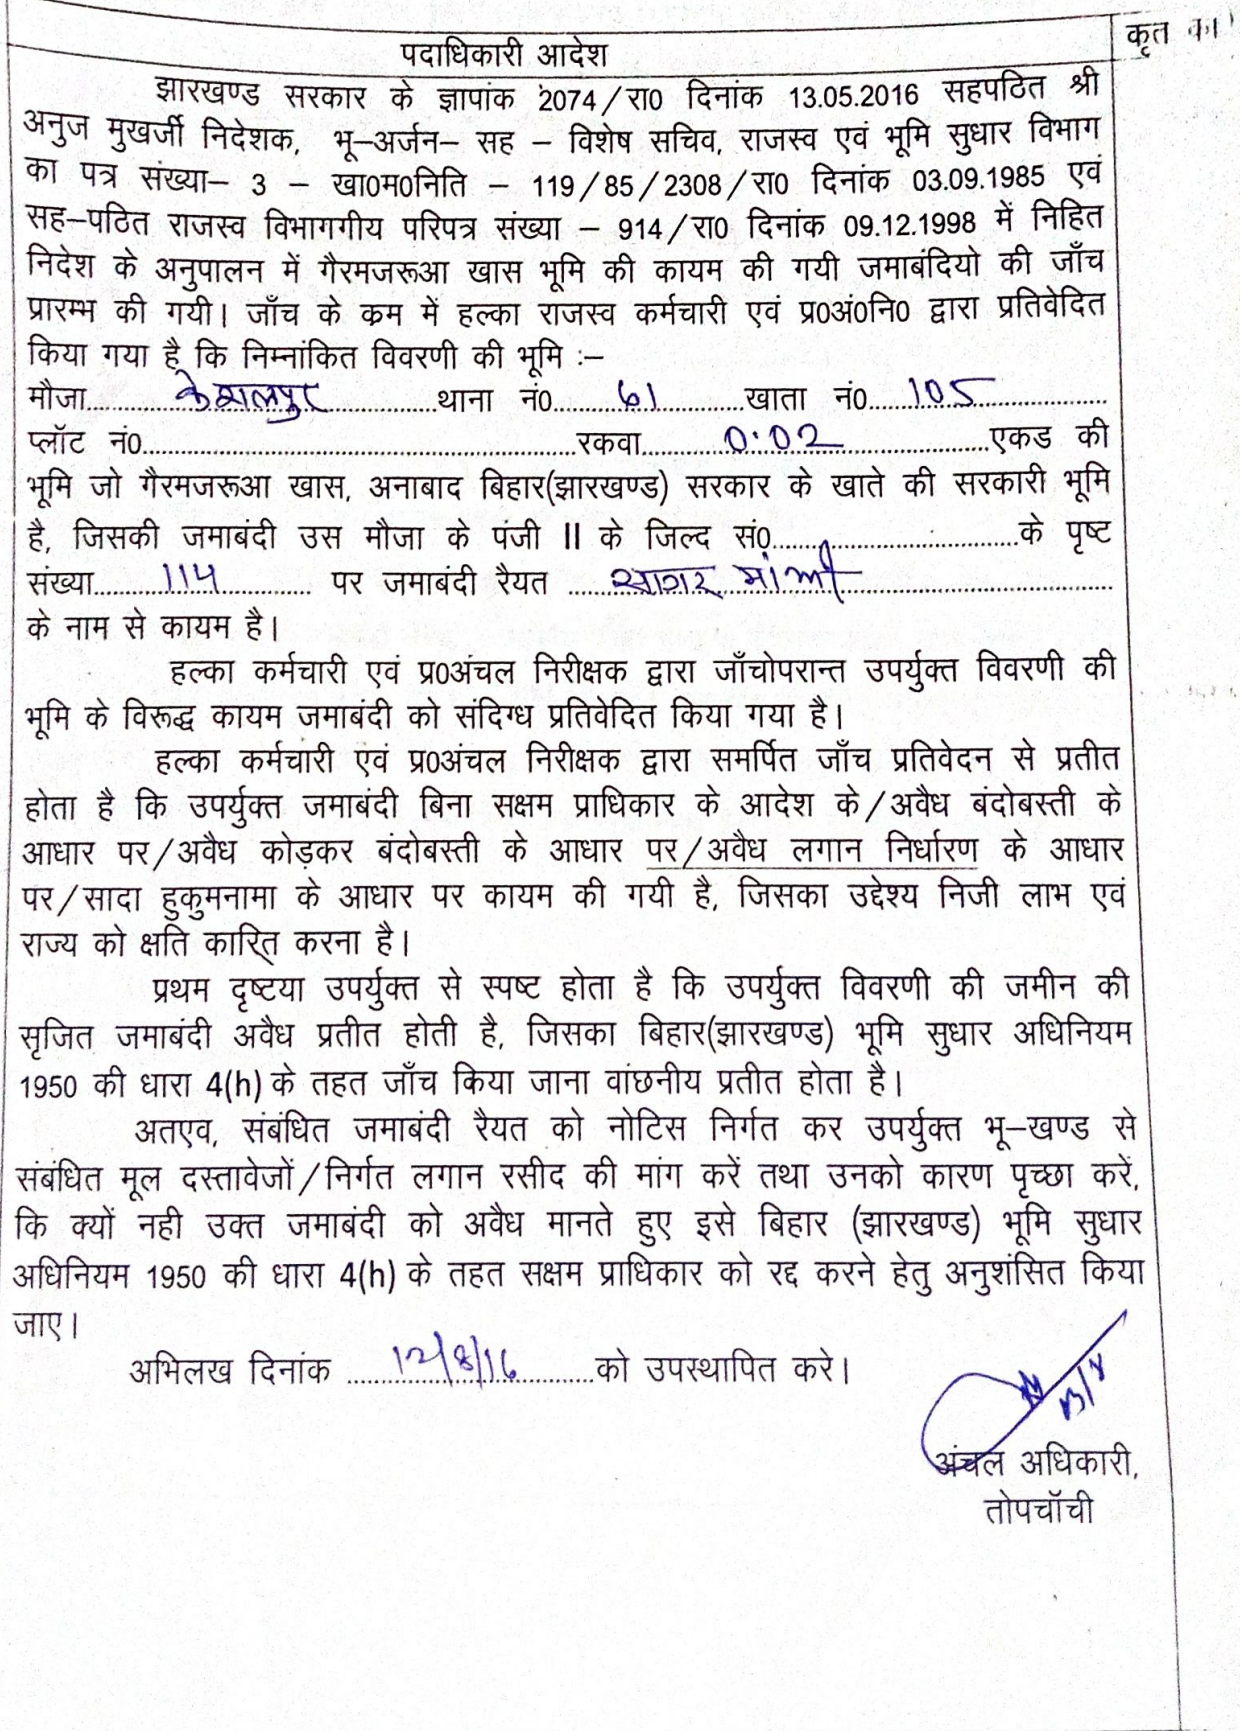 कृत का
पदाधिकारी आदेश
झारखण्ड सरकार के ज्ञापांक 2074/रा0 दिनांक 13.05.2016 सहपठित श्री
अनुज मुखर्जी निदेशक, भू–अर्जन– सह – विशेष सचिव, राजस्व एवं भूमि सुधार विभाग
का पत्र संख्या– 3 – खा0म0निति – 119/85/2308/रा0 दिनांक 03.09.1985 एवं
सह–पठित राजस्व विभागगीय परिपत्र संख्या – 914/रा0 दिनांक 09.12.1998 में निहित
निदेश के अनुपालन में गैरमजरूआ खास भूमि की कायम की गयी जमाबंदियो की जाँच
प्रारम्भ की गयी। जाँच के कम में हल्का राजस्व कर्मचारी एवं प्र0अं0नि0 द्वारा प्रतिवेदित
किया गया है कि निम्नांकित विवरणी की भूमि :–
मौजा.....केशलपुर.....थाना नं0.....61.....खाता नं0.....105.....
प्लॉट नं0..........रकवा.....0.02.....एकड की
भूमि जो गैरमजरूआ खास, अनाबाद बिहार(झारखण्ड) सरकार के खाते की सरकारी भूमि
है, जिसकी जमाबंदी उस मौजा के पंजी II के जिल्द सं0..........के पृष्ट
संख्या.....114..... पर जमाबंदी रैयत .....सागर मांझी.....
के नाम से कायम है।
हल्का कर्मचारी एवं प्र0अंचल निरीक्षक द्वारा जाँचोपरान्त उपर्युक्त विवरणी की
भूमि के विरूद्ध कायम जमाबंदी को संदिग्ध प्रतिवेदित किया गया है।
हल्का कर्मचारी एवं प्र0अंचल निरीक्षक द्वारा समर्पित जाँच प्रतिवेदन से प्रतीत
होता है कि उपर्युक्त जमाबंदी बिना सक्षम प्राधिकार के आदेश के/अवैध बंदोबस्ती के
आधार पर/अवैध कोड़कर बंदोबस्ती के आधार पर/अवैध लगान निर्धारण के आधार
पर/सादा हुकुमनामा के आधार पर कायम की गयी है, जिसका उद्देश्य निजी लाभ एवं
राज्य को क्षति कारित् करना है।
प्रथम दृष्टया उपर्युक्त से स्पष्ट होता है कि उपर्युक्त विवरणी की जमीन की
सृजित जमाबंदी अवैध प्रतीत होती है, जिसका बिहार(झारखण्ड) भूमि सुधार अधिनियम
1950 की धारा 4(h) के तहत जाँच किया जाना वांछनीय प्रतीत होता है।
अतएव, संबंधित जमाबंदी रैयत को नोटिस निर्गत कर उपर्युक्त भू–खण्ड से
संबंधित मूल दस्तावेजों/निर्गत लगान रसीद की मांग करें तथा उनको कारण पृच्छा करें,
कि क्यों नही उक्त जमाबंदी को अवैध मानते हुए इसे बिहार (झारखण्ड) भूमि सुधार
अधिनियम 1950 की धारा 4(h) के तहत सक्षम प्राधिकार को रद्द करने हेतु अनुशंसित किया
जाए।
अभिलख दिनांक .....12/8/16.....को उपस्थापित करे।
अंचल अधिकारी,
तोपचॉची